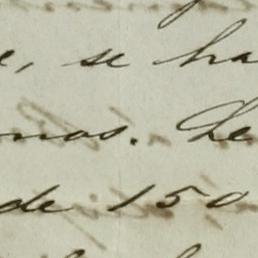 e, se ha
mos. Le
de 150